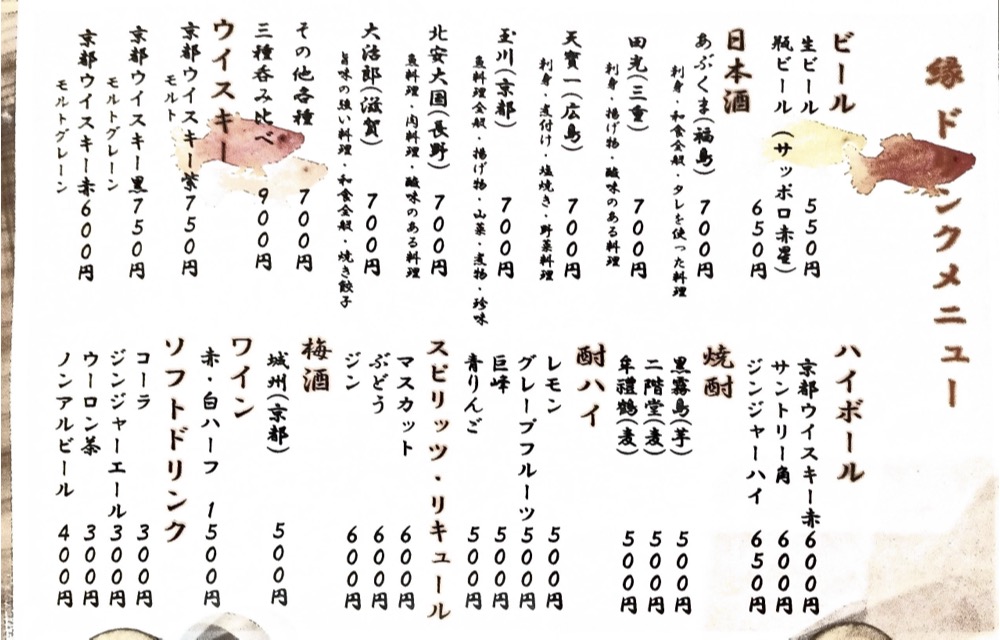 縁 ドリンクメニュー
ビール
生ビール 550円
瓶ビール (サッポロ赤星) 650円
日本酒
あぶくま(福島) 700円
刺身・和食全般・タレを使った料理
田光(三重) 700円
刺身・揚げ物・酸味のある料理
天寶一(広島) 700円
刺身・煮付け・塩焼き・野菜料理
玉川(京都) 700円
魚料理全般・揚げ物・山菜・煮物・珍味
北安大国(長野) 700円
魚料理・肉料理・酸味のある料理
大治郎(滋賀) 700円
旨味の強い料理・和食全般・焼き餃子
その他各種 700円
三種呑み比べ 900円
ウイスキー
京都ウイスキー紫750円
モルト
京都ウイスキー黒750円
モルトグレーン
京都ウイスキー赤600円
モルトグレーン
ハイボール
京都ウイスキー赤600円
サントリー角 600円
ジンジャーハイ 650円
焼酎
黒霧島(芋) 500円
二階堂(麦) 500円
牟禮鶴(麦) 500円
酎ハイ
レモン 500円
グレープフルーツ500円
巨峰 500円
青りんご 500円
スピリッツ・リキュール
マスカット 600円
ぶどう 600円
ジン 600円
梅酒
城州(京都) 500円
ワイン
赤・白ハーフ 1500円
ソフトドリンク
コーラ 300円
ジンジャーエール300円
ウーロン茶 300円
ノンアルビール 400円